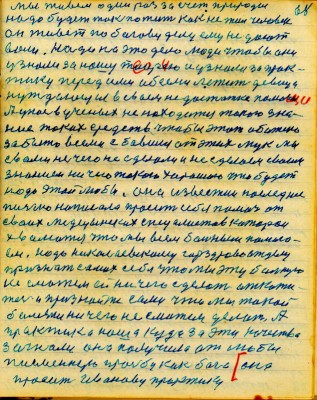 мы живем один раз за счет природы
надо будет так пожить как не жил человек
он живет по боговому делу ему не дают
воли. Надо на это дело люди чтобы они
узнали за нашу и узнали за прак-
тику перед ними обеими лежит девица
нуждающая в своем недостатке помощи
А у нас ученых не находится такого зна-
ния таких средств чтобы этот
забыть всеми от этих мук мы
своим ничего не сделали и не сделаем своим
знанием ничего такого хорошего что будет
надо этой любви. она последнее
письмо написала просит себя помощь от
своих медицинских специалистов которая
хвалится что мы всем больным помога-
ем, надо николаевскому горздравотделу
признать самих себя что мы эту больную
не можем ей ничего сделать
так и признайте сами что мы такой
болезни ничего не сможем делать. А
практика наша куда за эти качества
загнали она получила от любви
письменную просьбу как бога она
просит Иванову практику